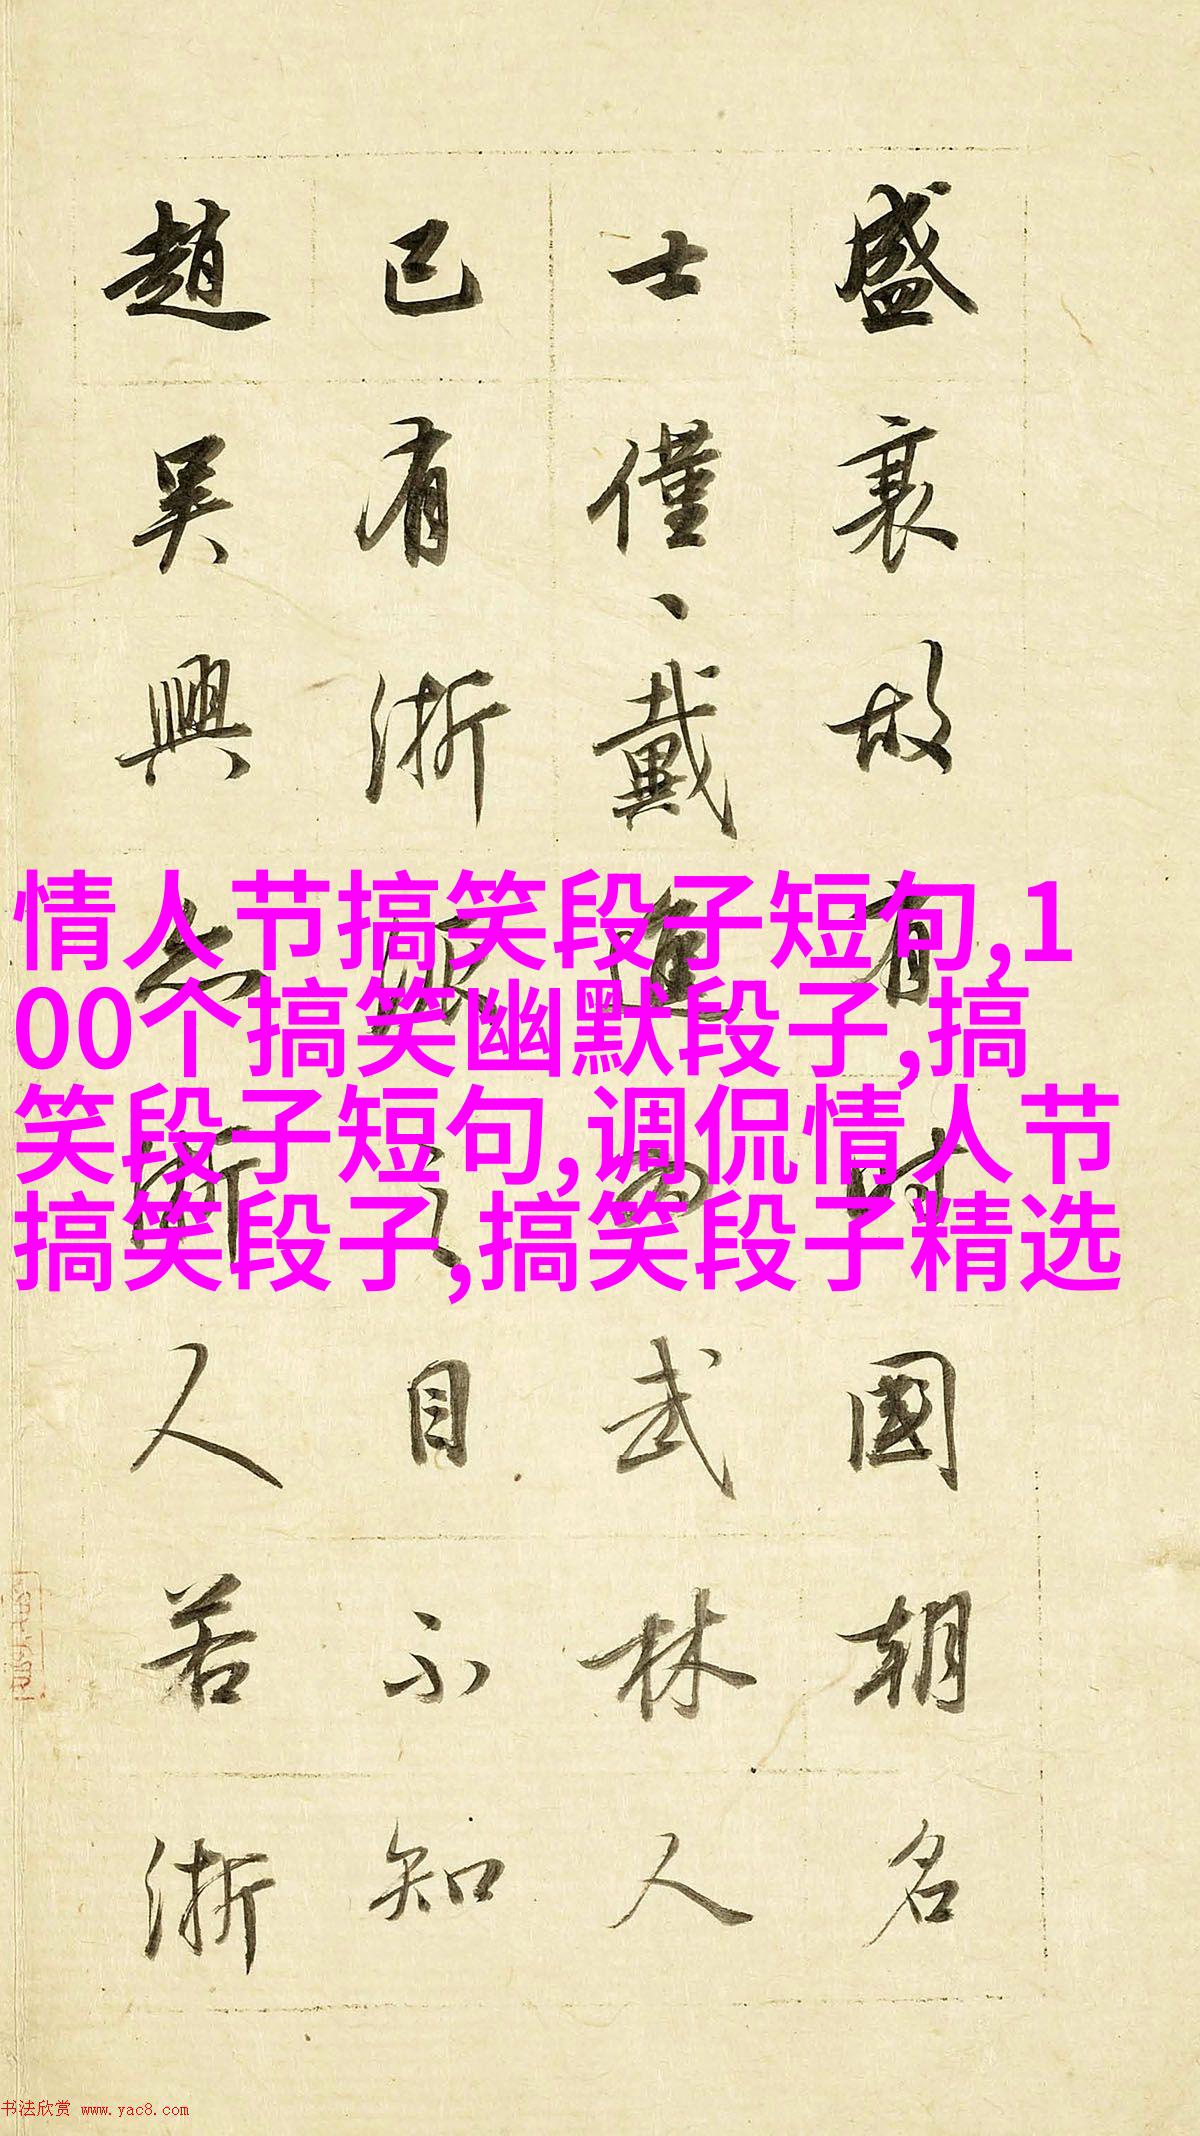 盛衰故有时國朝名
士僅、戴進為武林人
已有浙派之目不知
趙吳興亦浙人若浙
情人节搞笑段子短句,1
00个搞笑幽默段子,搞
笑段子短句,调侃情人节
搞笑段子,搞笑段子精选
书法欣赏 www.yac8.com